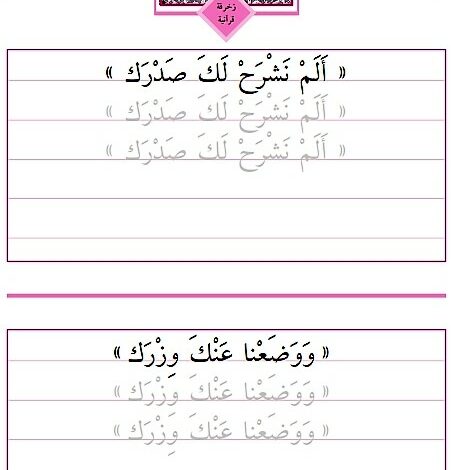 زخرفة
قرآنية
« أَلَمْ نَشْرَحْ لَكَ صَدْرَك »
« أَلَمْ نَشْرَحْ لَكَ صَدْرَك »
« أَلَمْ نَشْرَحْ لَكَ صَدْرَك »
« وَوَضَعْنا عَنْكَ وِزْرَك »
« وَوَضَعْنا عَنْكَ وِزْرَك »
« وَوَضَعْنا عَنْكَ وِزْرَك »